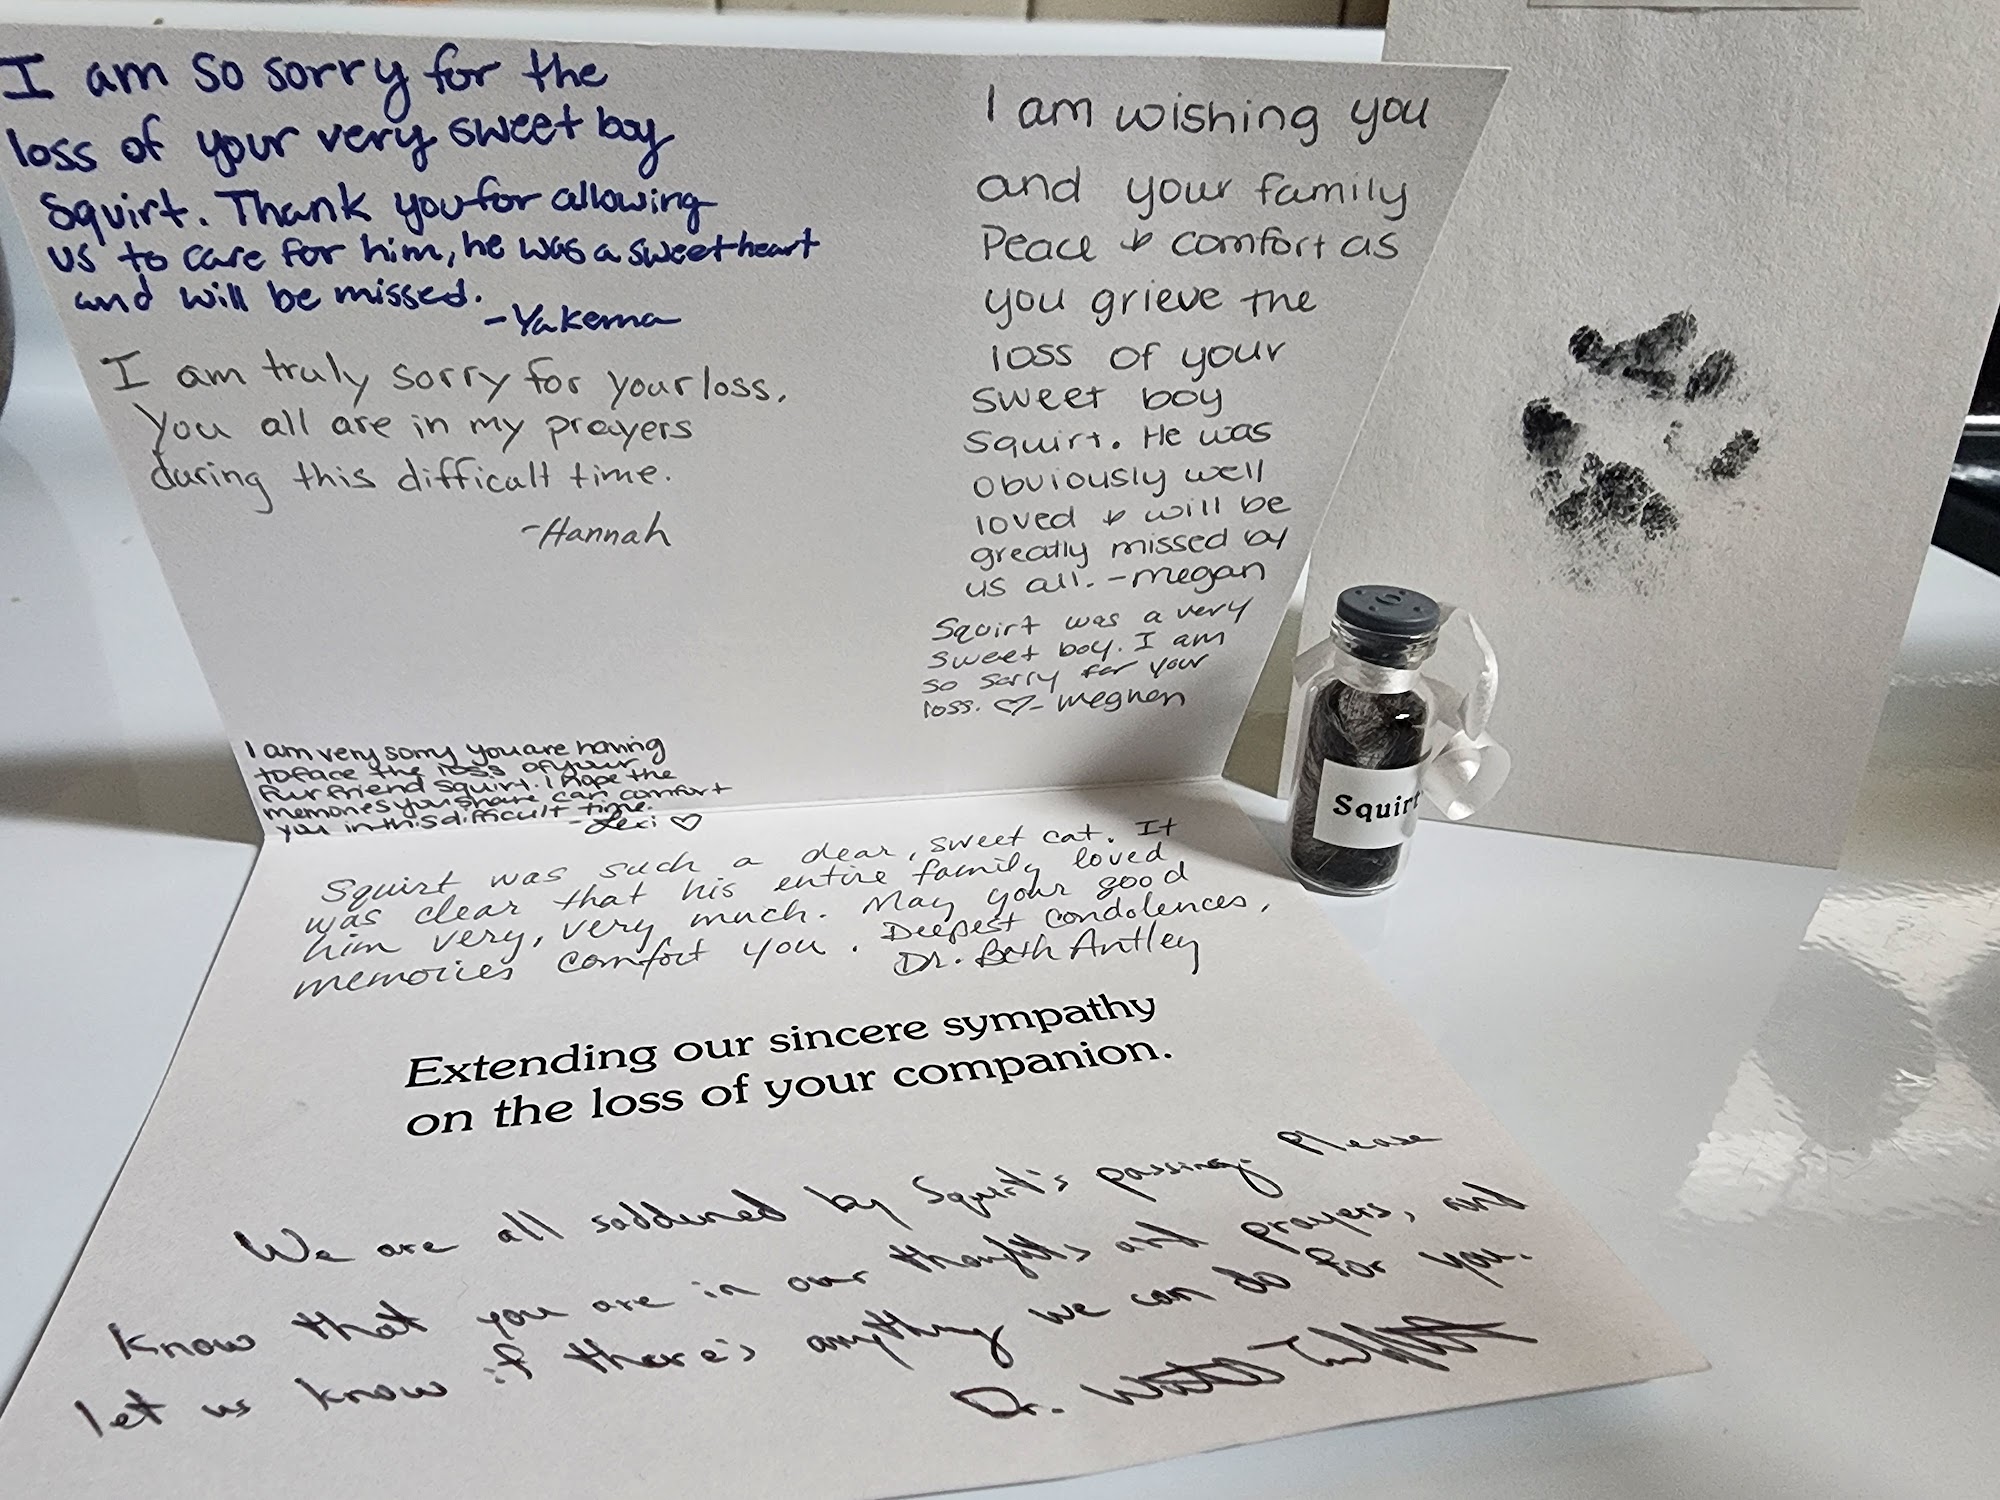 I am so sorry for the
loss of your very sweet boy
Squirt. Thank you for allowing
us to care for him, he was a sweetheart
and will be missed.
-Yakema
I am truly sorry for your loss.
You all are in my prayers
during this difficult time.
-Hannah
I am very sorry you are having
to face the loss of your
fur friend Squirt. I hope the
memories you share can comfort
you in this difficult time.
-Lexi ♡
I am wishing you
and your family
Peace & comfort as
you grieve the
loss of your
sweet boy
Squirt. He was
obviously well
loved & will be
greatly missed by
us all. -megan
Squirt was a very
sweet boy. I am
so sorry for your
loss. ♡- Meghen
Squirt
Squirt was such a dear, sweet cat. It
was clear that his entire family loved
him very, very much. May your good
memories comfort you. Deepest condolences,
Dr. Beth Antley
Extending our sincere sympathy
on the loss of your companion.
We are all saddened by Squirt's passing. Please
know that you are in our thoughts and prayers, and
let us know if there's anything we can do for you.
Dr.